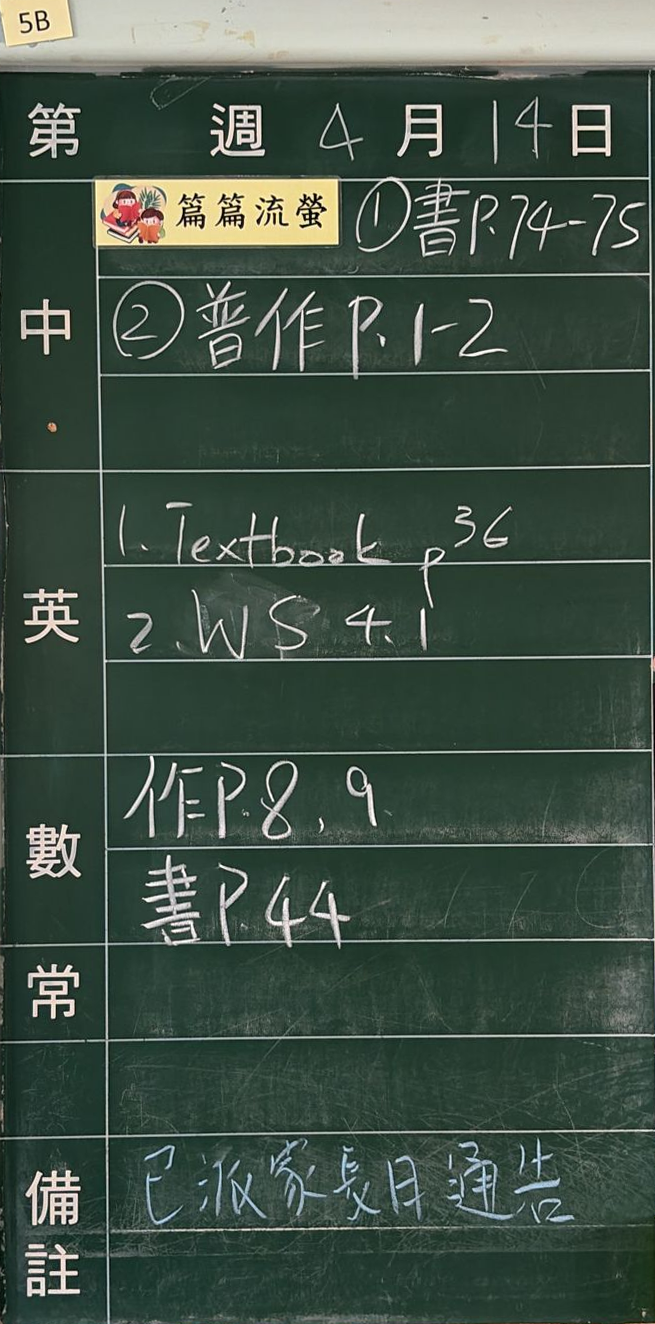 5B
第 週 4 月 14 日
中 篇篇流螢 ①書P.74-75
②普作P.1-2
英 1. Textbook p36
2. WS 4.1
數 作P.8, 9
書P.44
常
備註 已派家長日通告